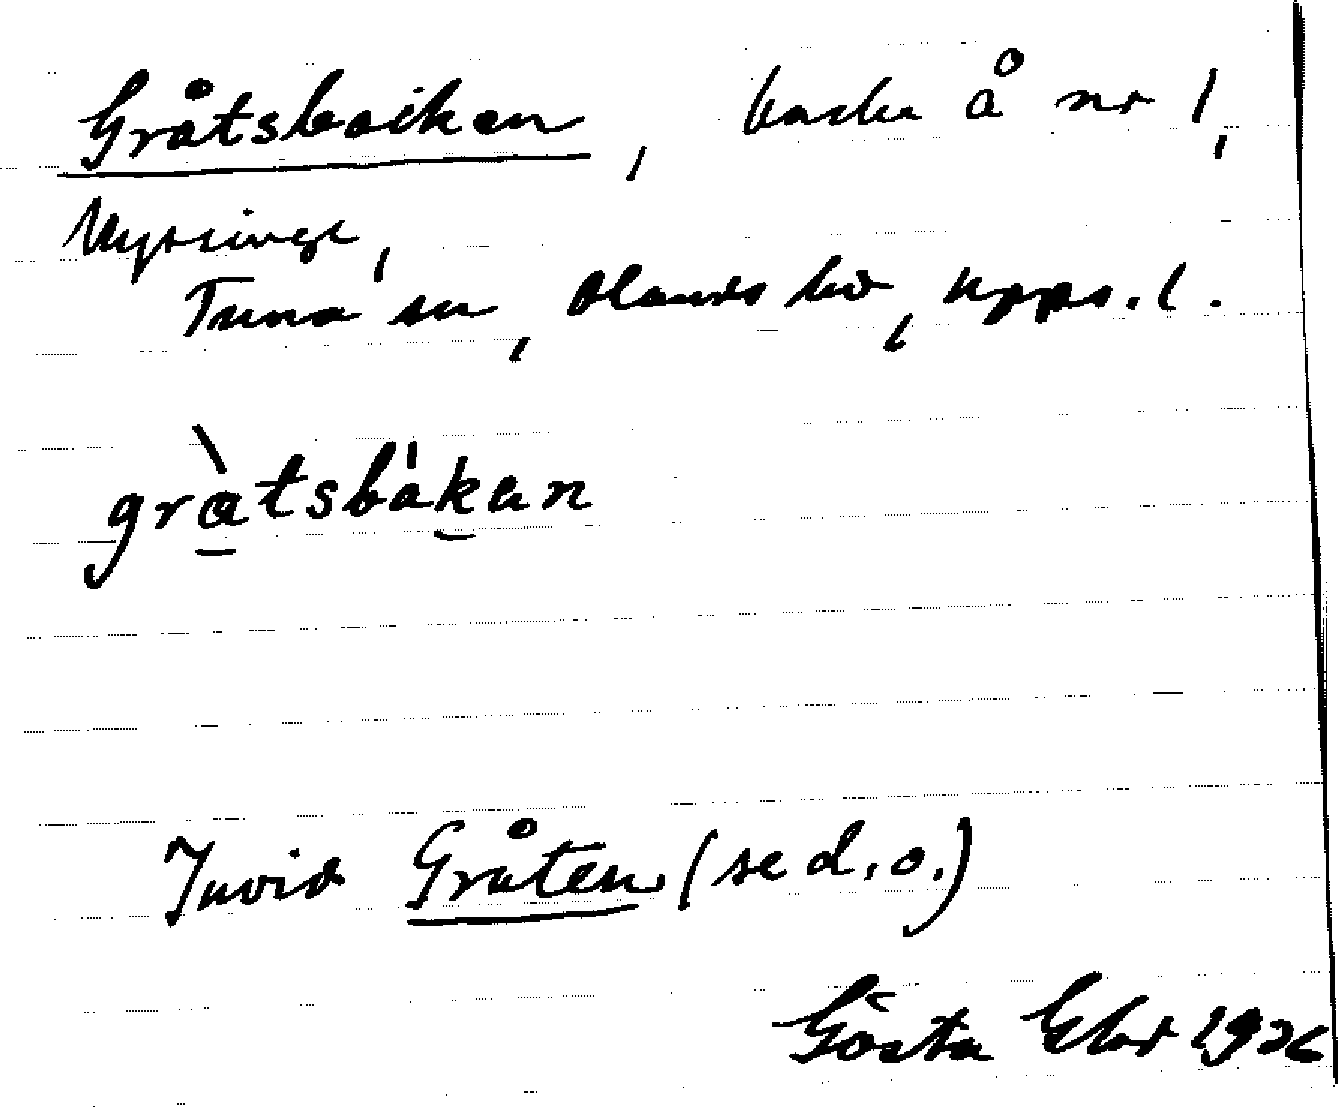 Gråtsbacken, backe å nr 1,
Nyvinge,
Tuna sn, Olands hd, Upps. l.
gråtsbàkan
Invid Gråten (se d. o.)
Gösta Ekbr 1936